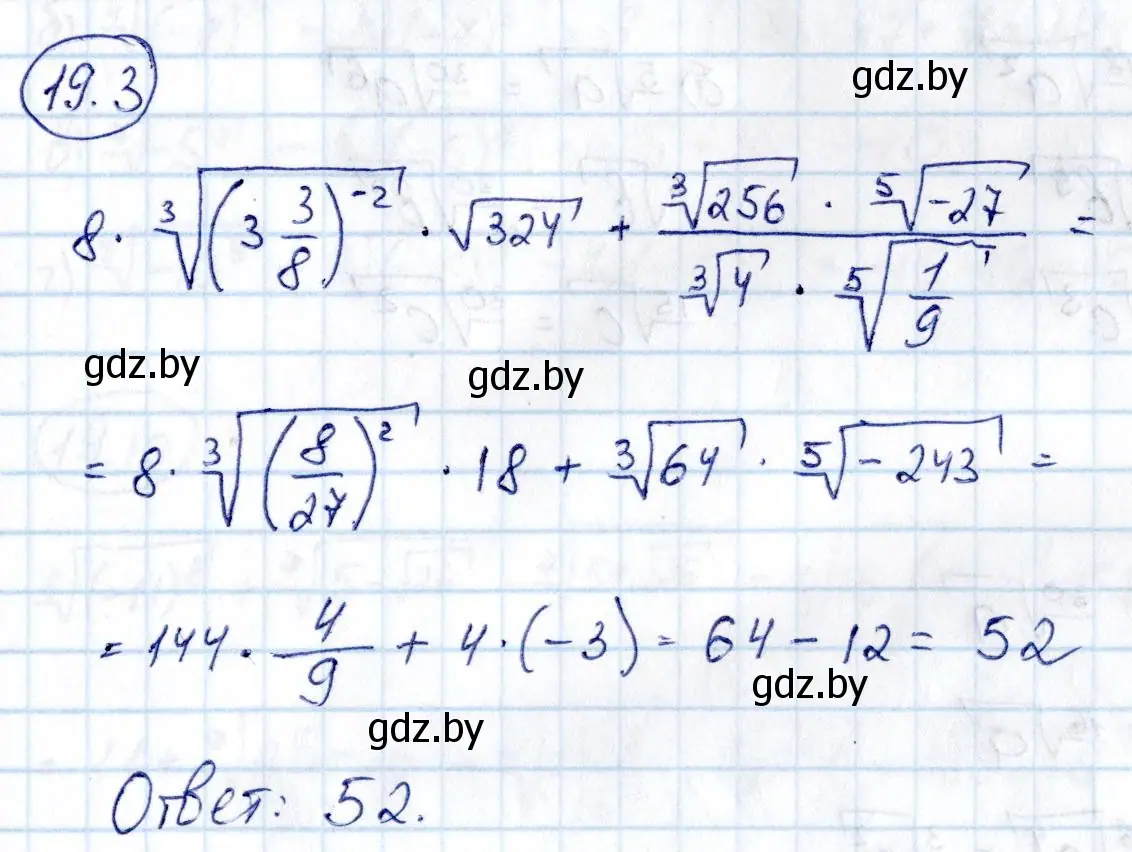 19.3
gdz.by
8 · ∛((3 3/8)^-2) · √324 + (∛256 · ⁵√-27)/(∛4 · ⁵√(1/9)) =
gdz.by gdz.by
= 8 · ∛((8/27)^2) · 18 + ∛64 · ⁵√-243 =
= 144 · 4/9 + 4 · (-3) = 64 - 12 = 52
gdz.by
gdz.by
Ответ: 52.